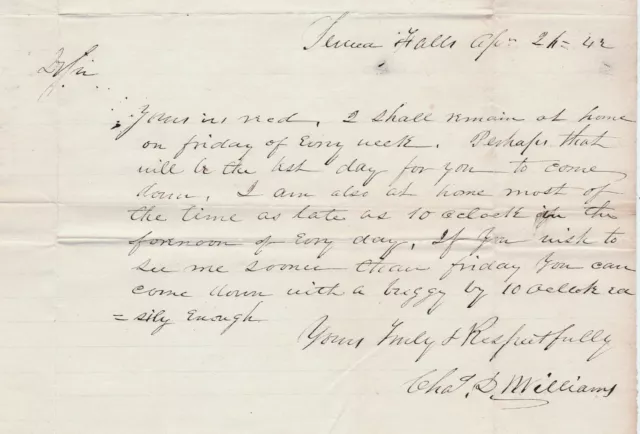 Seneca Falls Apr 26 = 42
D Sir
Yours is recd. I shall remain at home
on friday of Evry week. Perhaps that
will be the best day for you to come
down. I am also at home most of
the time as late as 10 oclock in the
forenoon of Evry day. If you wish to
see me sooner than friday You can
come down with a buggy by 10 oclock ea
= sily Enough
Yours Truly & Respectfully
Chas. D. Williams